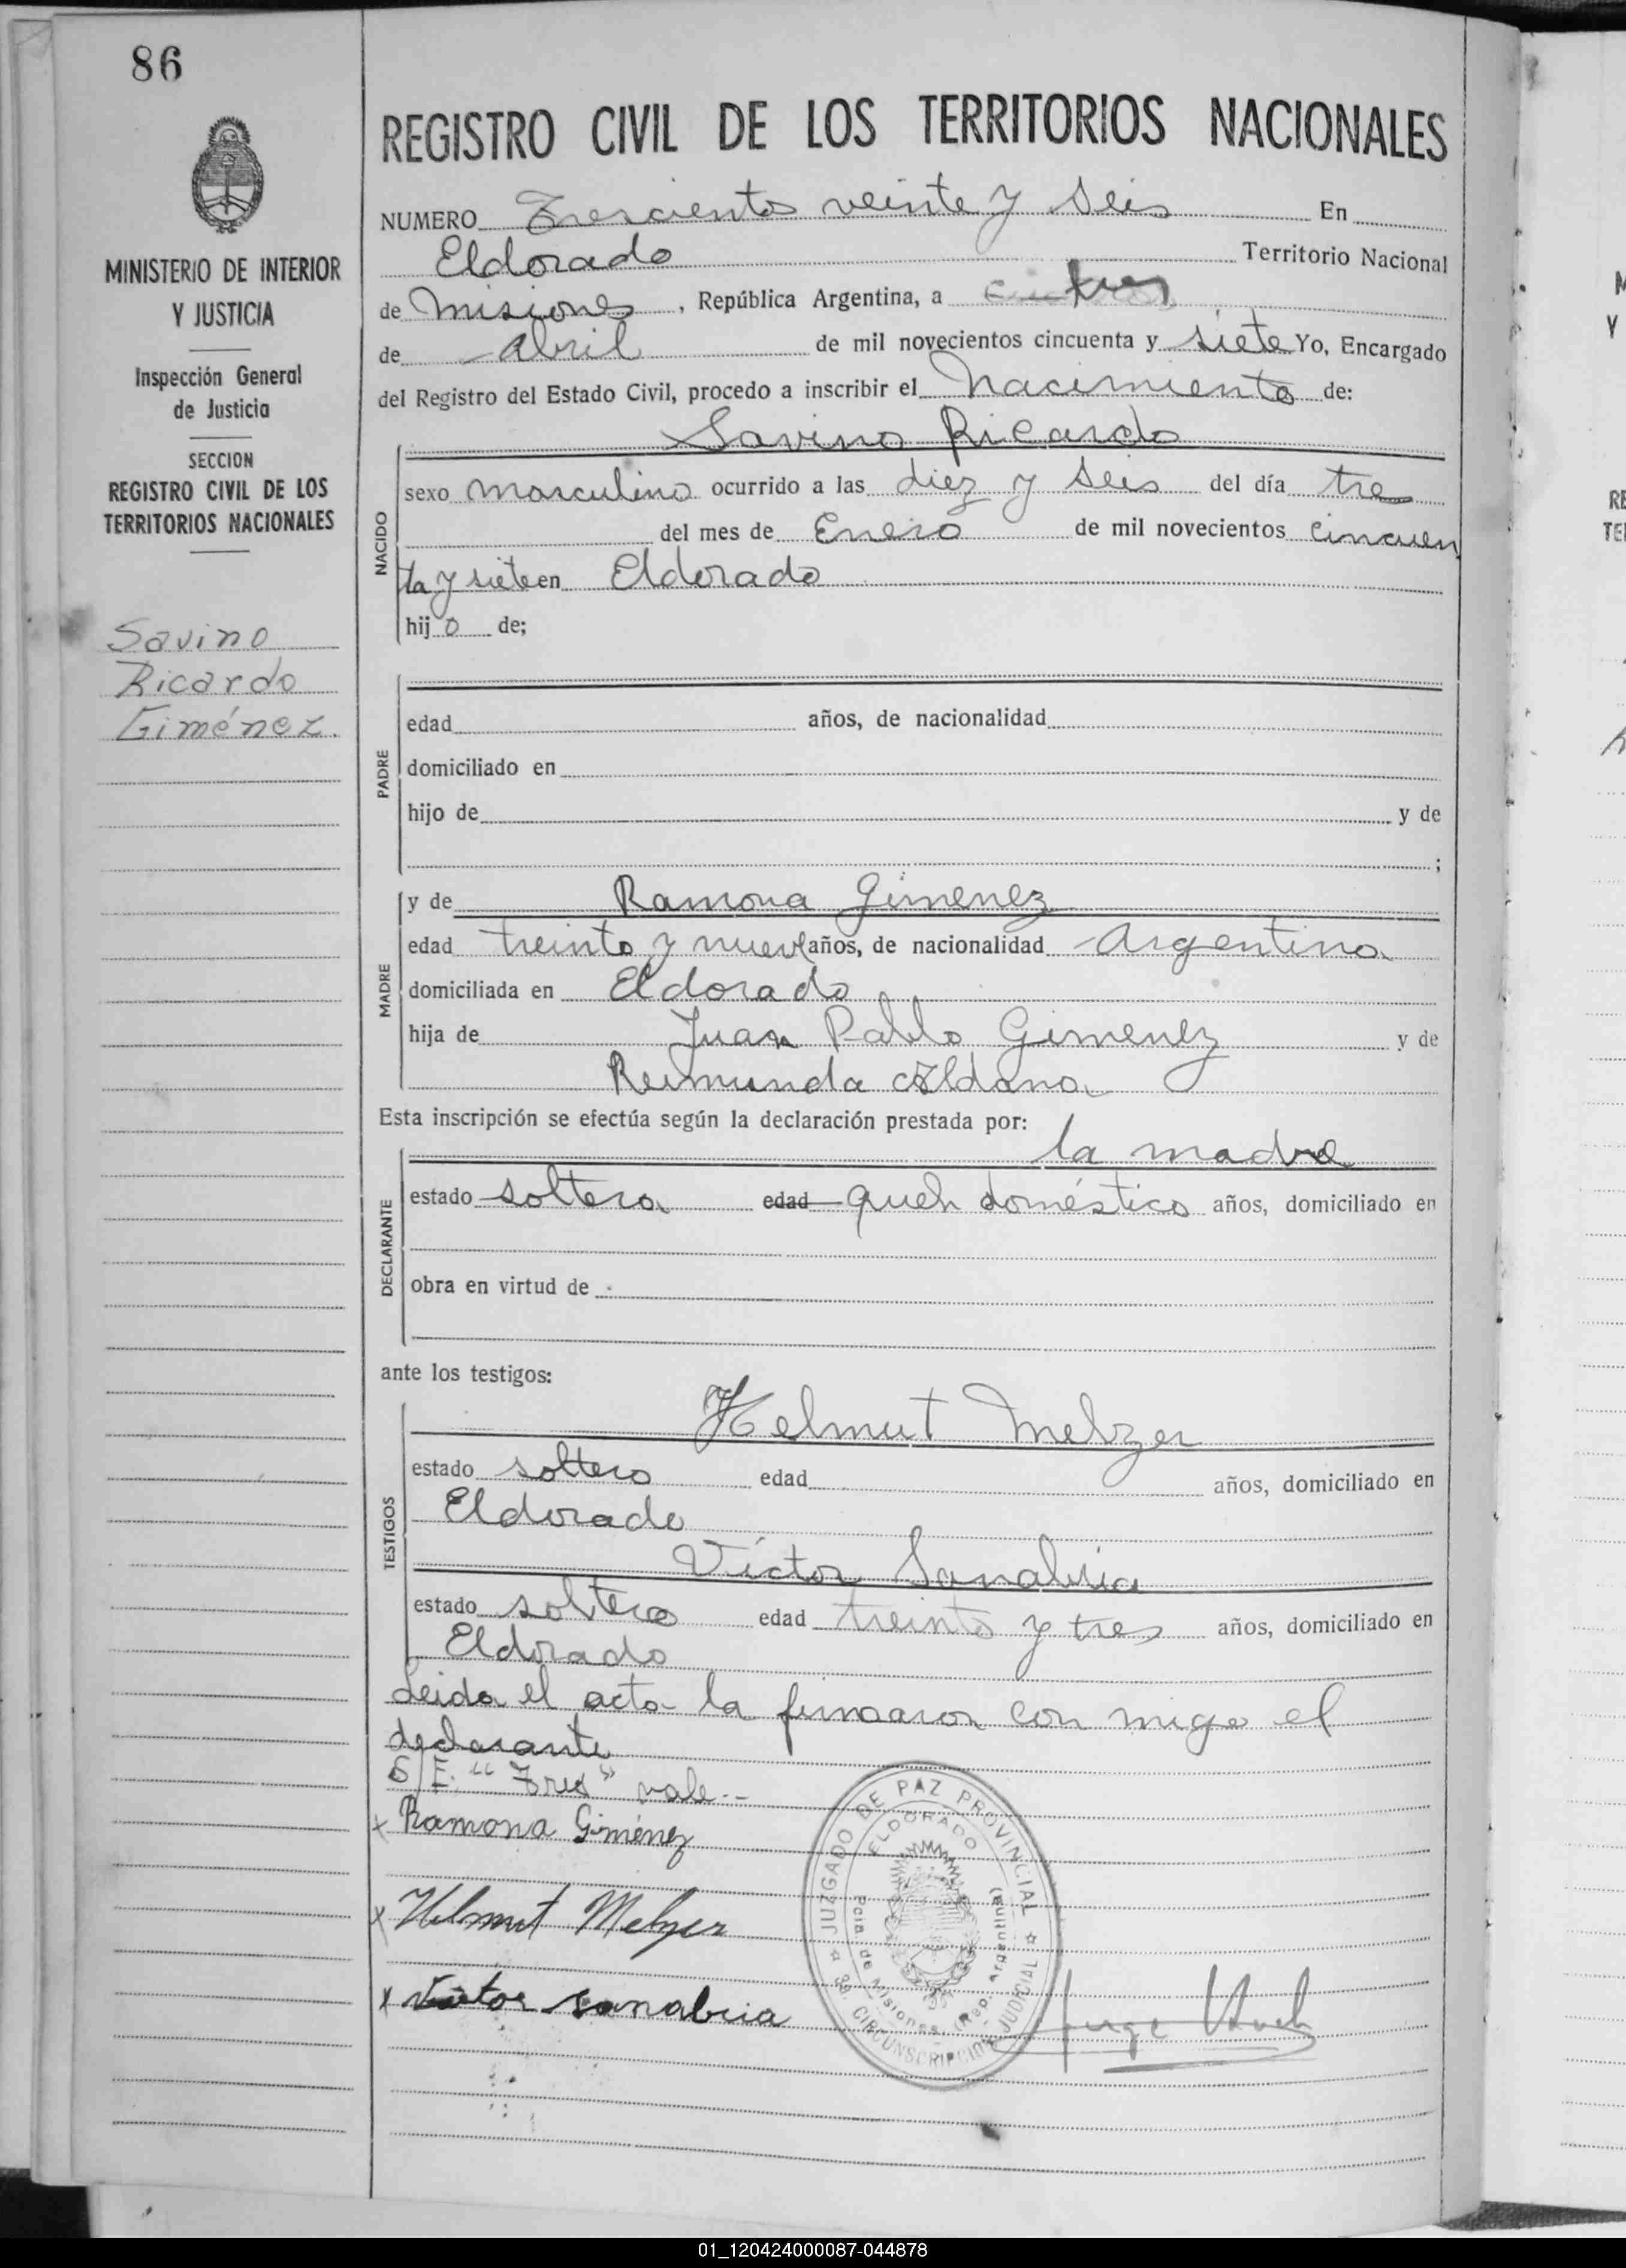 86
MINISTERIO DE INTERIOR
Y JUSTICIA
Inspección General
de Justicia
SECCION
REGISTRO CIVIL DE LOS
TERRITORIOS NACIONALES
Savino
Ricardo
Giménez.
REGISTRO CIVIL DE LOS TERRITORIOS NACIONALES
NUMERO Trescientos veinte y seis En
Eldorado Territorio Nacional
de Misiones, República Argentina, a tres
de Abril de mil novecientos cincuenta y siete Yo, Encargado
del Registro del Estado Civil, procedo a inscribir el Nacimiento de:
Savino Ricardo
NACIDO
sexo masculino ocurrido a las diez y seis del día tre
del mes de Enero de mil novecientos cincuen
ta y siete en Eldorado
hijo de;
PADRE
edad años, de nacionalidad
domiciliado en
hijo de y de
;
MADRE
y de Ramona Gimenez
edad treinta y nueve años, de nacionalidad Argentina
domiciliada en Eldorado
hija de Juan Pablo Gimenez y de
Reimunda Aldana
Esta inscripción se efectúa según la declaración prestada por:
la madre
DECLARANTE
estado soltera edad queh doméstico años, domiciliado en
obra en virtud de
ante los testigos:
TESTIGOS
Helmut Melzer
estado soltero edad años, domiciliado en
Eldorado
Victor Sanabria
estado soltero edad treinta y tres años, domiciliado en
Eldorado
Leida el acta la firmaron con migo el
declarante
S/E. "Tres" vale.--
x Ramona Giménez
x Helmut Melzer
x Victor Sanabria
JUZGADO DE PAZ PROVINCIAL
ELDORADO
Pcia. de Misiones (Rep. Argentina)
CIRCUNSCRIPCION JUDICIAL
01_120424000087-044878